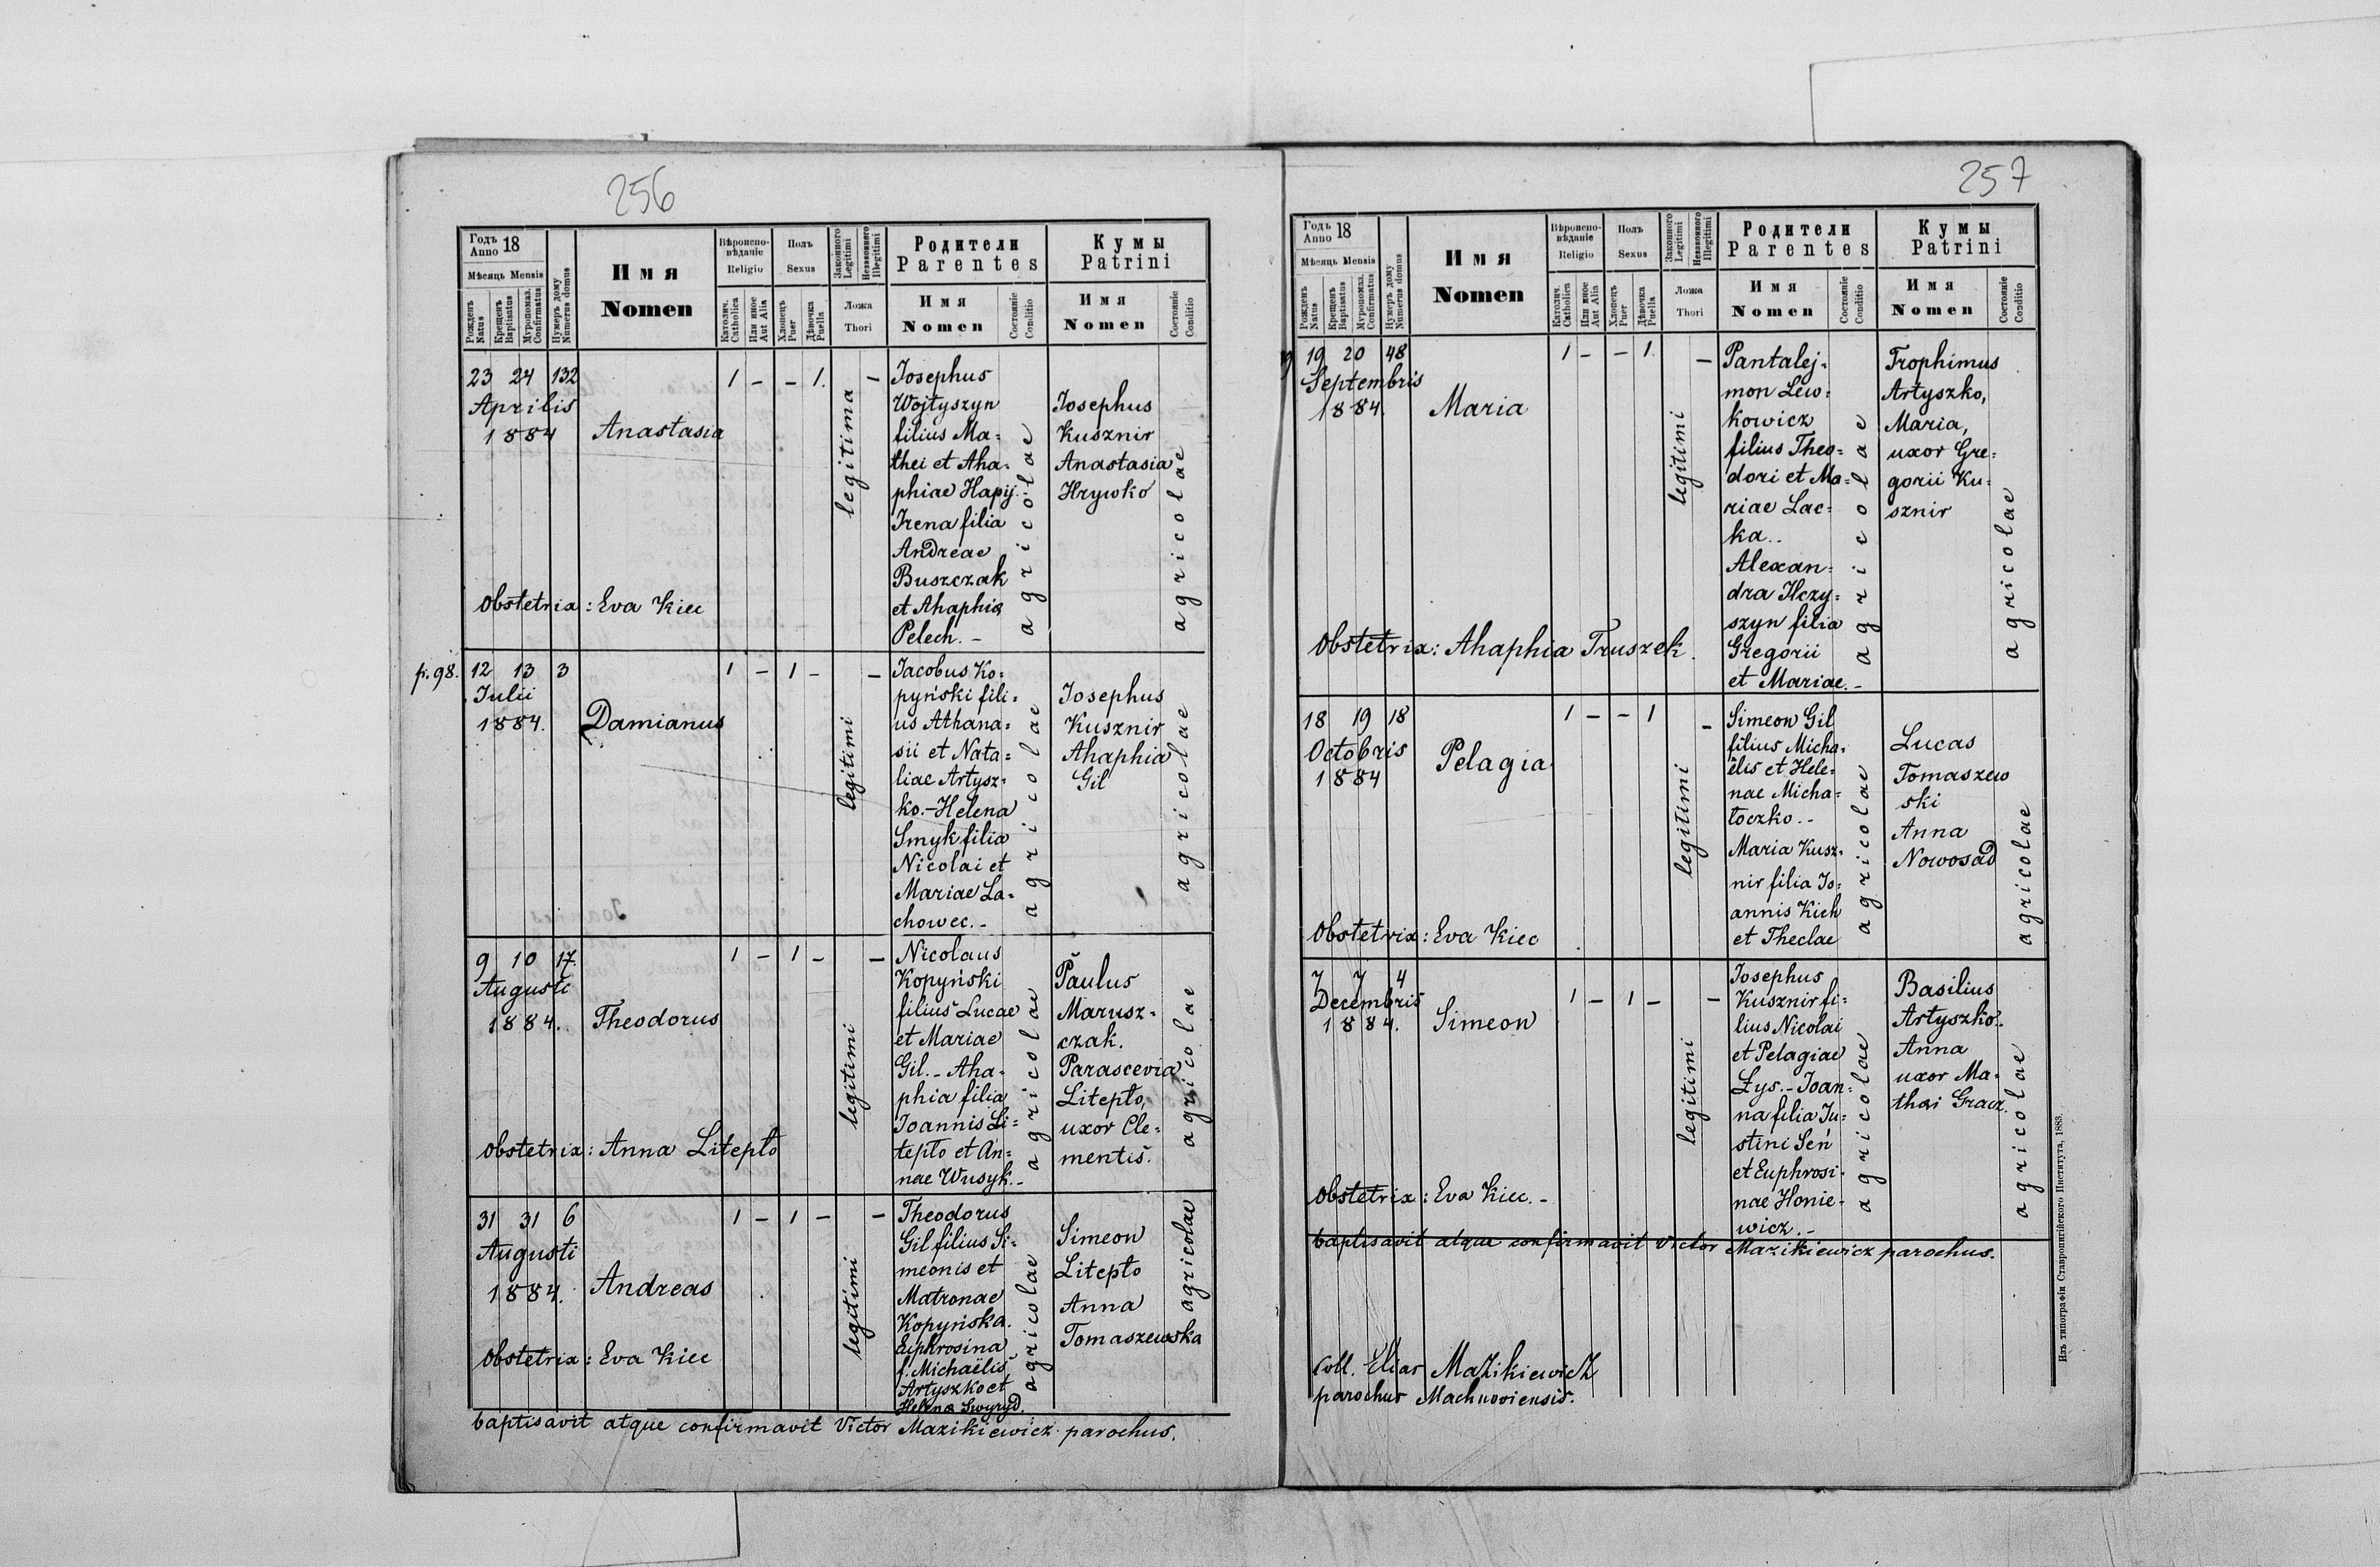 256
Годъ 18
Anno
Мѣсяць Mensis
Рожденъ Natus
Крещенъ Baptisatus
Муропомаз. Confirmatus
Нумеръ дому Numerus domus
Имя
Nomen
Вѣроиспо-
вѣданіе
Religio
Католич. Catholica
Или иное Aut Alia
Полъ
Sexus
Хлопецъ Puer
Дѣвочка Puella
Законного Legitimi
Незаконного Illegitimi
Ложа
Thori
Родители
Parentes
Имя
Nomen
Состояніе Conditio
Кумы
Patrini
Имя
Nomen
Состояніе Conditio
23 24 132
Aprilis
1884
Anastasia
1 - - 1.
legitima
-
Josephus
Wojtyszyn
filius Ma=
thei et Aha=
phiae Hapij.-
Irena filia
Andreae
Buszczak
et Ahaphia
Pelech. -
agricolae
Josephus
Kusznir
Anastasia
Hrywko
agricolae
Obstetrix: Eva Kiec
p. 98.
12 13 3
Julii
1884.
Damianus
1 - 1 -
legitimi
-
Jacobus Ko=
pyński fili=
us Athana=
sii et Nata=
liae Artysz=
ko.- Helena
Smyk filia
Nicolai et
Mariae La=
chowec. -
agricolae
Josephus
Kusznir
Ahaphia
Gil
agricolae
9 10 17.
Augusti
1884.
Theodorus
1 - 1 -
legitimi
-
Nicolaus
Kopyński
filius Lucae
et Mariae
Gil. - Aha=
phia filia
Joannis Li=
tepło et An=
nae Wusyk. -
agricolae
Paulus
Marusz=
czak.
Parascevia
Litepło,
uxor Cle=
mentis.
agricolae
Obstetrix: Anna Litepło
31 31 6
Augusti
1884.
Andreas
1 - 1 -
legitimi
-
Theodorus
Gil filius Si=
meonis et
Matronae
Kopyńska.
Euphrosina
f. Michaëlis
Artyszko et
Helena Swyryd.
agricolae
Simeon
Litepło
Anna
Tomaszewska
agricolae
Obstetrix: Eva Kiec
baptisavit atque confirmavit Victor Mazikiewicz parochus.
257
Годъ 18
Anno
Мѣсяць Mensis
Рожденъ Natus
Крещенъ Baptisatus
Муропомаз. Confirmatus
Нумеръ дому Numerus domus
Имя
Nomen
Вѣроиспо-
вѣданіе
Religio
Католич. Catholica
Или иное Aut Alia
Полъ
Sexus
Хлопецъ Puer
Дѣвочка Puella
Законного Legitimi
Незаконного Illegitimi
Ложа
Thori
Родители
Parentes
Имя
Nomen
Состояніе Conditio
Кумы
Patrini
Имя
Nomen
Состояніе Conditio
19 20 48
Septembris
1884.
Maria
1 - - 1.
legitimi
-
Pantalej=
mon Lew=
kowicz
filius Theo=
dori et Ma=
riae Lac=
ka..
Alexan=
dra Ilczy=
szyn filia
Gregorii
et Mariae. -
agricolae
Trophimus
Artyszko,
Maria,
uxor Gre=
gorii Ku=
sznir
agricolae
Obstetrix: Ahaphia Truszek.
18 19 18
Octobris
1884
Pelagia
1 - - 1
legitimi
-
Simeon Gil
filius Micha=
ëlis et Hele=
nae Micha=
łoczko. -
Maria Kusz=
nir filia Jo=
annis Kich
et Theclae
agricolae
Lucas
Tomaszew
ski
Anna
Nowosad
agricolae
Obstetrix: Eva Kiec
7 7 4
Decembris
1884.
Simeon
1 - 1 -
legitimi
-
Josephus
Kusznir fi=
lius Nicolai
et Pelagiae
Łys. - Joan=
na filia Ju=
stini Seń
et Euphrosi=
nae Honie=
wicz. -
agricolae
Basilius
Artyszko.
Anna
uxor Ma=
thei Gracz.
agricolae
Obstetrix: Eva Kiec. -
baptisavit atque confirmavit Victor Mazikiewicz parochus.
Coll. Elias Mazikiewicz
parochus Machnoviensis.
Изъ типографіи Ставропигійского Института, 1883.